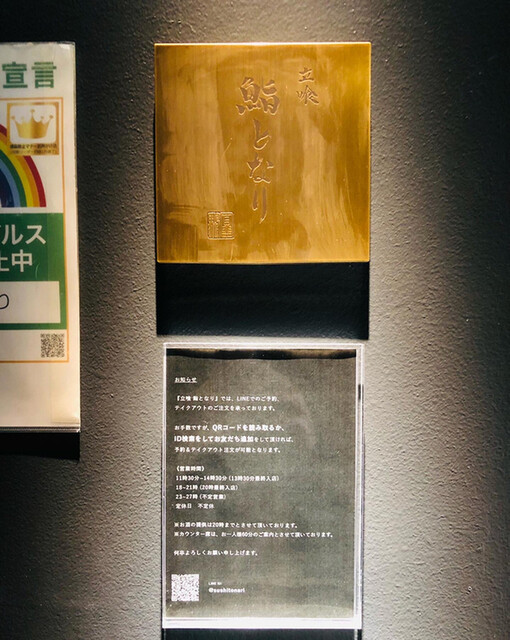 宣言
ルス
止中
立喰
鮨となり
お知らせ
『立喰 鮨となり』では、LINEでのご予約、
テイクアウトのご注文を承っております。
お手数ですが、QRコードを読み取るか、
ID検索をしてお友だち追加をして頂ければ、
予約&テイクアウト注文が可能となります。
《営業時間》
11時30分-14時30分(13時30分最終入店)
18-21時(20時最終入店)
23-27時(不定営業)
定休日 不定休
※お酒の提供は20時までとさせて頂いております。
※カウンター席は、お一人様60分のご案内とさせて頂いております。
何卒よろしくお願い申し上げます。
LINE ID:
@sushitonari